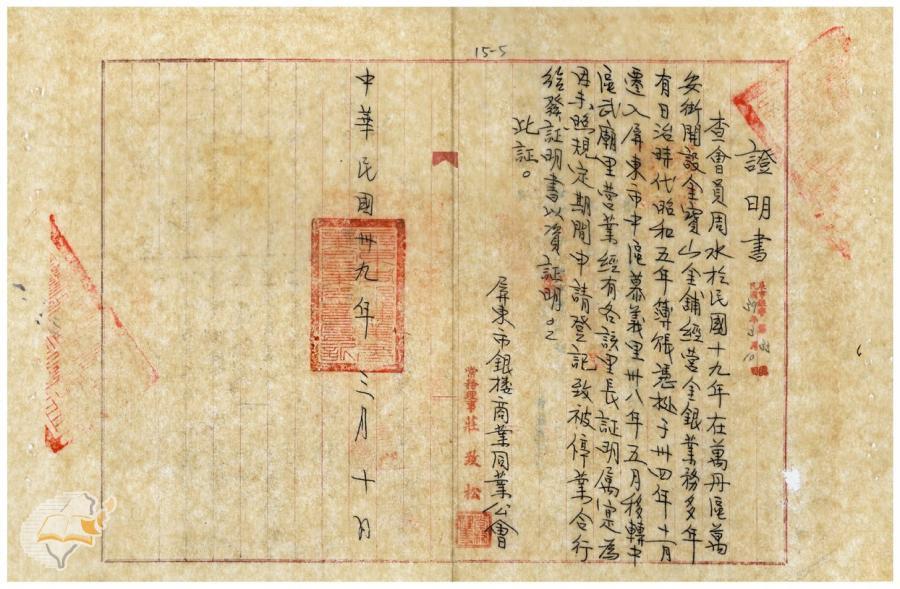 15-5
證明書
查會員周水於民國十九年在萬丹區萬
安街開設金寶山金鋪經營金銀業務多年
有日治時代昭和五年簿賬憑於于卅四年十一月
遷入屏東市中區慕義里卅八年五月移轉中
區武廟里營業經有各該里長証明屬實為
因未照規定期間申請登記致被停業合行
給發証明書以資証明。
此証。
屏東市銀樓商業同業公會
常務理事 莊致松
中華民國卅九年三月十日